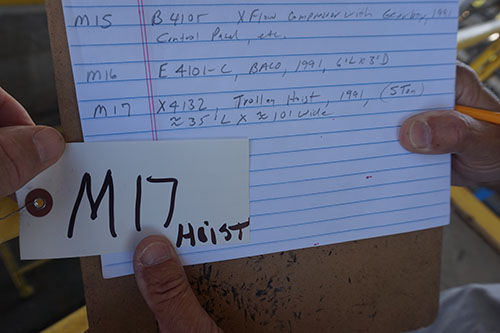 M15 B 4105 X Flow Compressor with Gearbox, 1991
Control Panel, etc.
M16 E 4101-C, BACO, 1991, 6'L x 3'D
M17 X4132, Trolley Hoist, 1991, (5 Ton)
≈ 35'L X ≈ 10' Wide
M17
HOIST